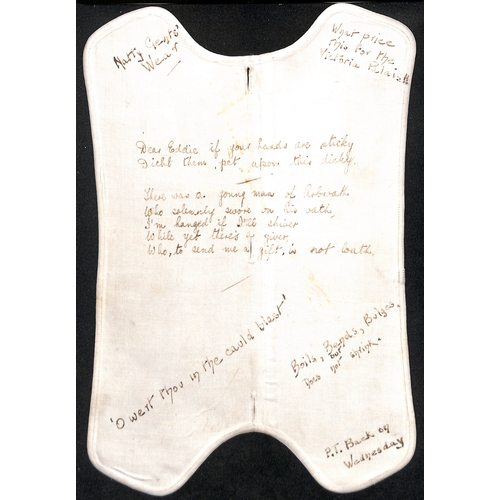 Natty Gents'
Wear
What price
this for the
Victoria
Dear Eddie if your hands are sticky
Dicht them, pet, upon this dicky.
There was a young man of Arbroath
Who solemnly swore on his oath,
I'm hanged if I'll shiver
While yet there's a giver
Who, to send me a gift, is not loath.
'O wert thou in the cauld blast'
Boils, Bends, Bulges,
but
Does not shrink.
P.T. Back on
Wednesday